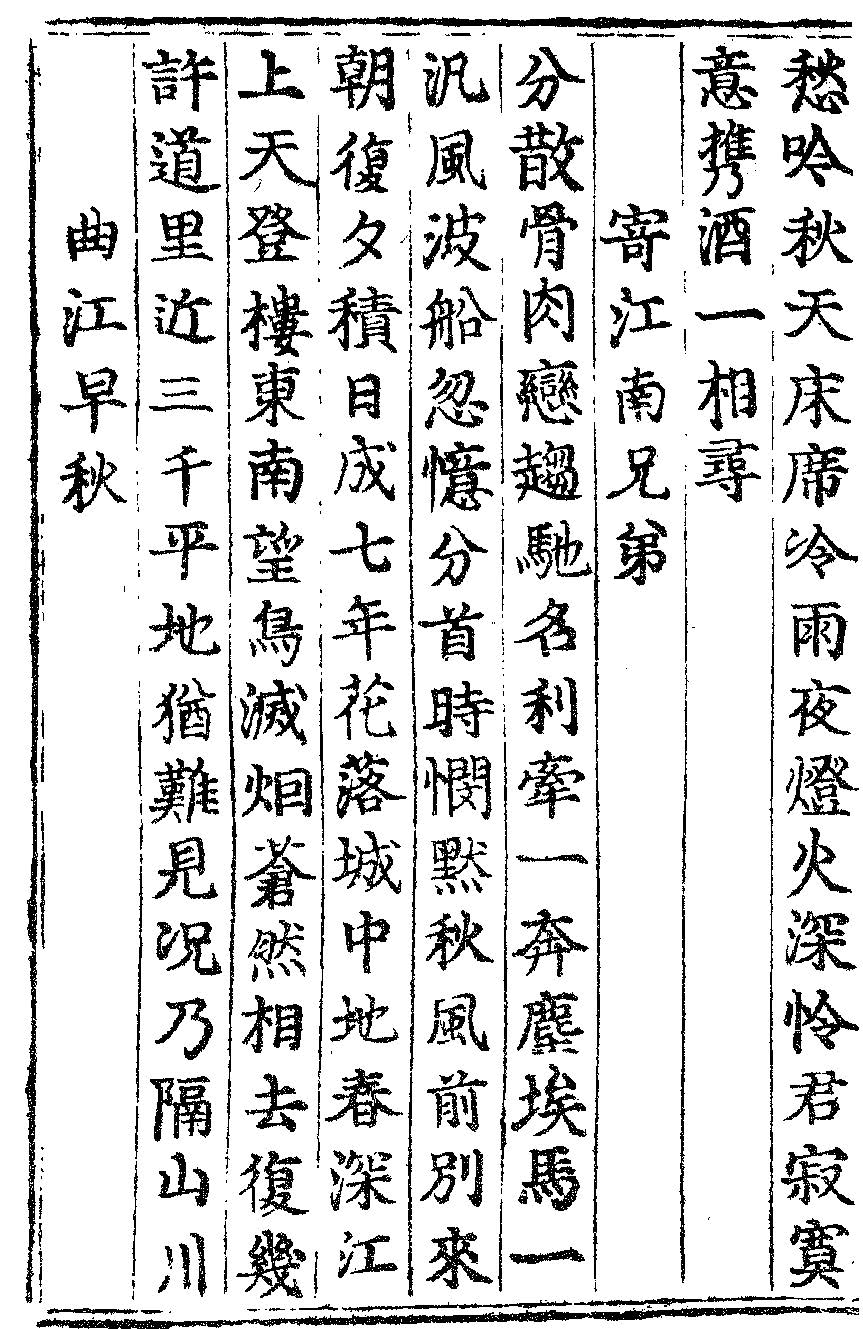 愁吟秋天床席冷雨夜燈火深怜君寂寞
意携酒一相尋
寄江南兄弟
分散骨肉戀趨馳名利牽一奔塵埃馬一
汎風波船忽憶分首時憫默秋風前別來
朝復夕積日成七年花落城中地春深江
上天登樓東南望鳥滅烟蒼然相去復幾
許道里近三千平地猶難見况乃隔山川
曲江早秋